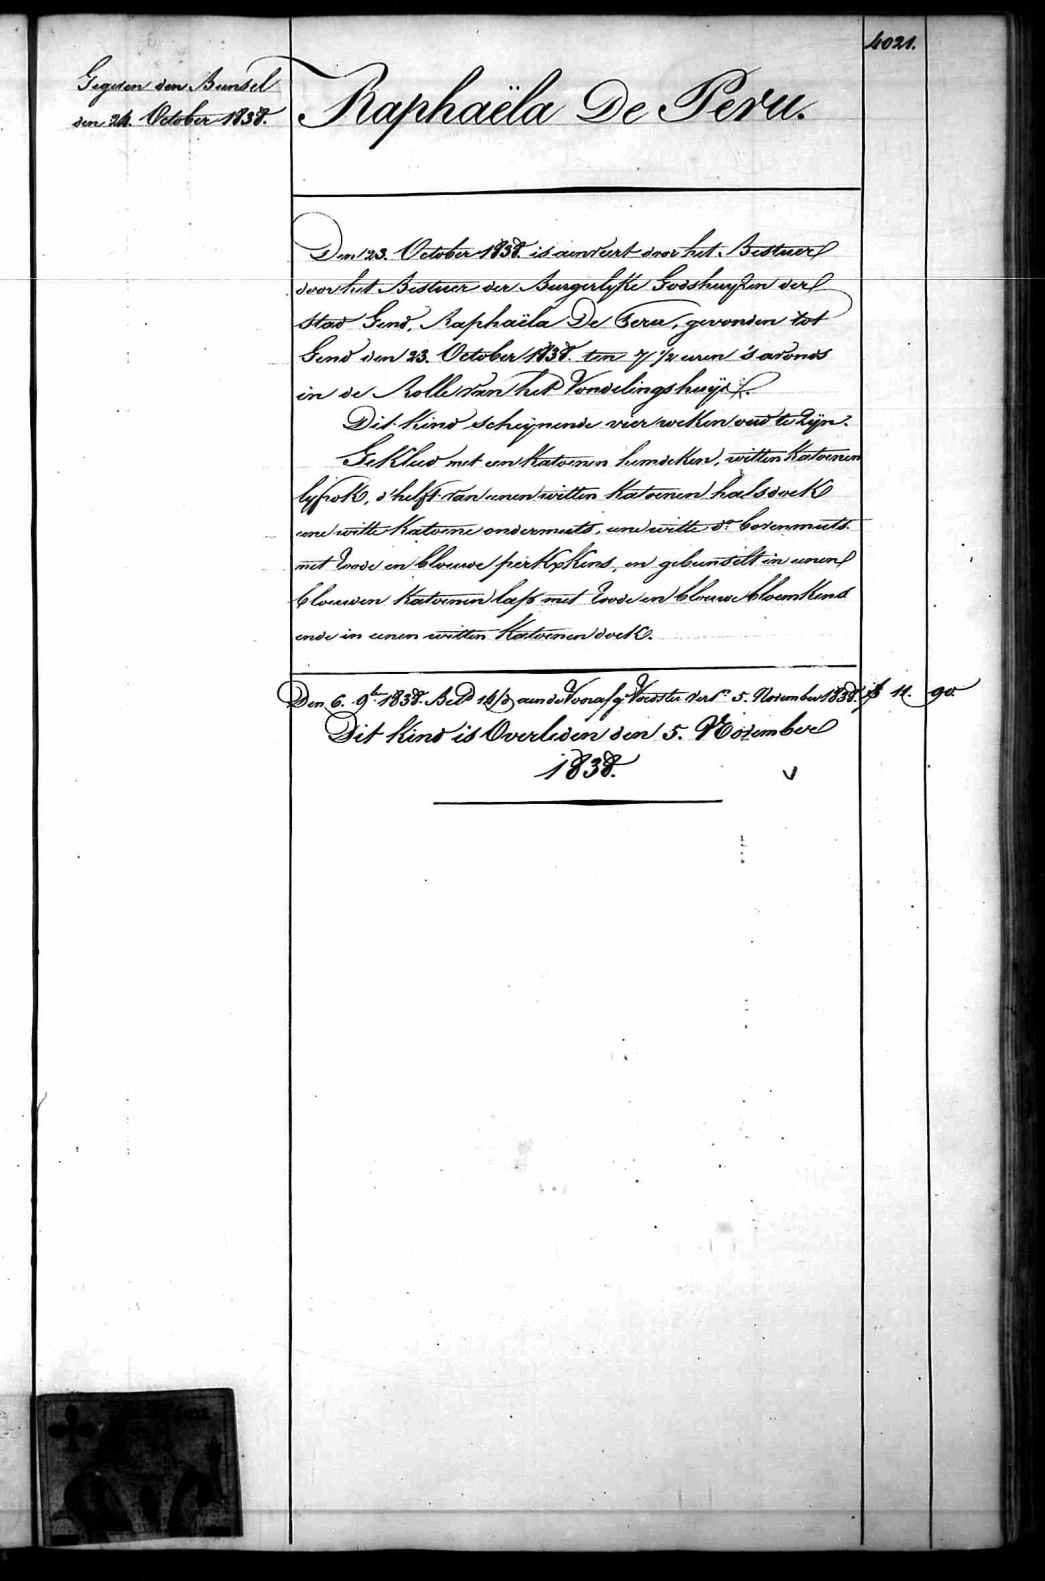 4021.
Gegeven den Bunsel
den 24. October 1838.
Raphaëla De Peru.
Den 23. October 1838. is aenveert door het Bestuer
door het Bestuer der Burgerlyke Godshuyzen der
Stad Gend, Raphaëla De Peru, gevonden tot
Gend den 23. October 1838. ten 7 1/2 uren 's avonds
in de Rolle van het Vondelingshuys.
Dit Kind scheynende vier weken oud te zyn.
Gekleed met een Katoenen hemdeken, witten Katoenen
lyfrok, d'helft van eenen witten Katoenen halsdoek
eene witte Katoene ondermuts, eene witte do bovenmuts
met roode en blouwe perkxkens, en gebunselt in eenen
blouwen Katoenen lap met roode en blouwe bloemkens
ende in eenen witten Katoenen doek.
Den 6. 9b 1838. Bet. aen de Voedster 5. November 1838. 11. 90.
Dit Kind is Overleden den 5. November
1838.